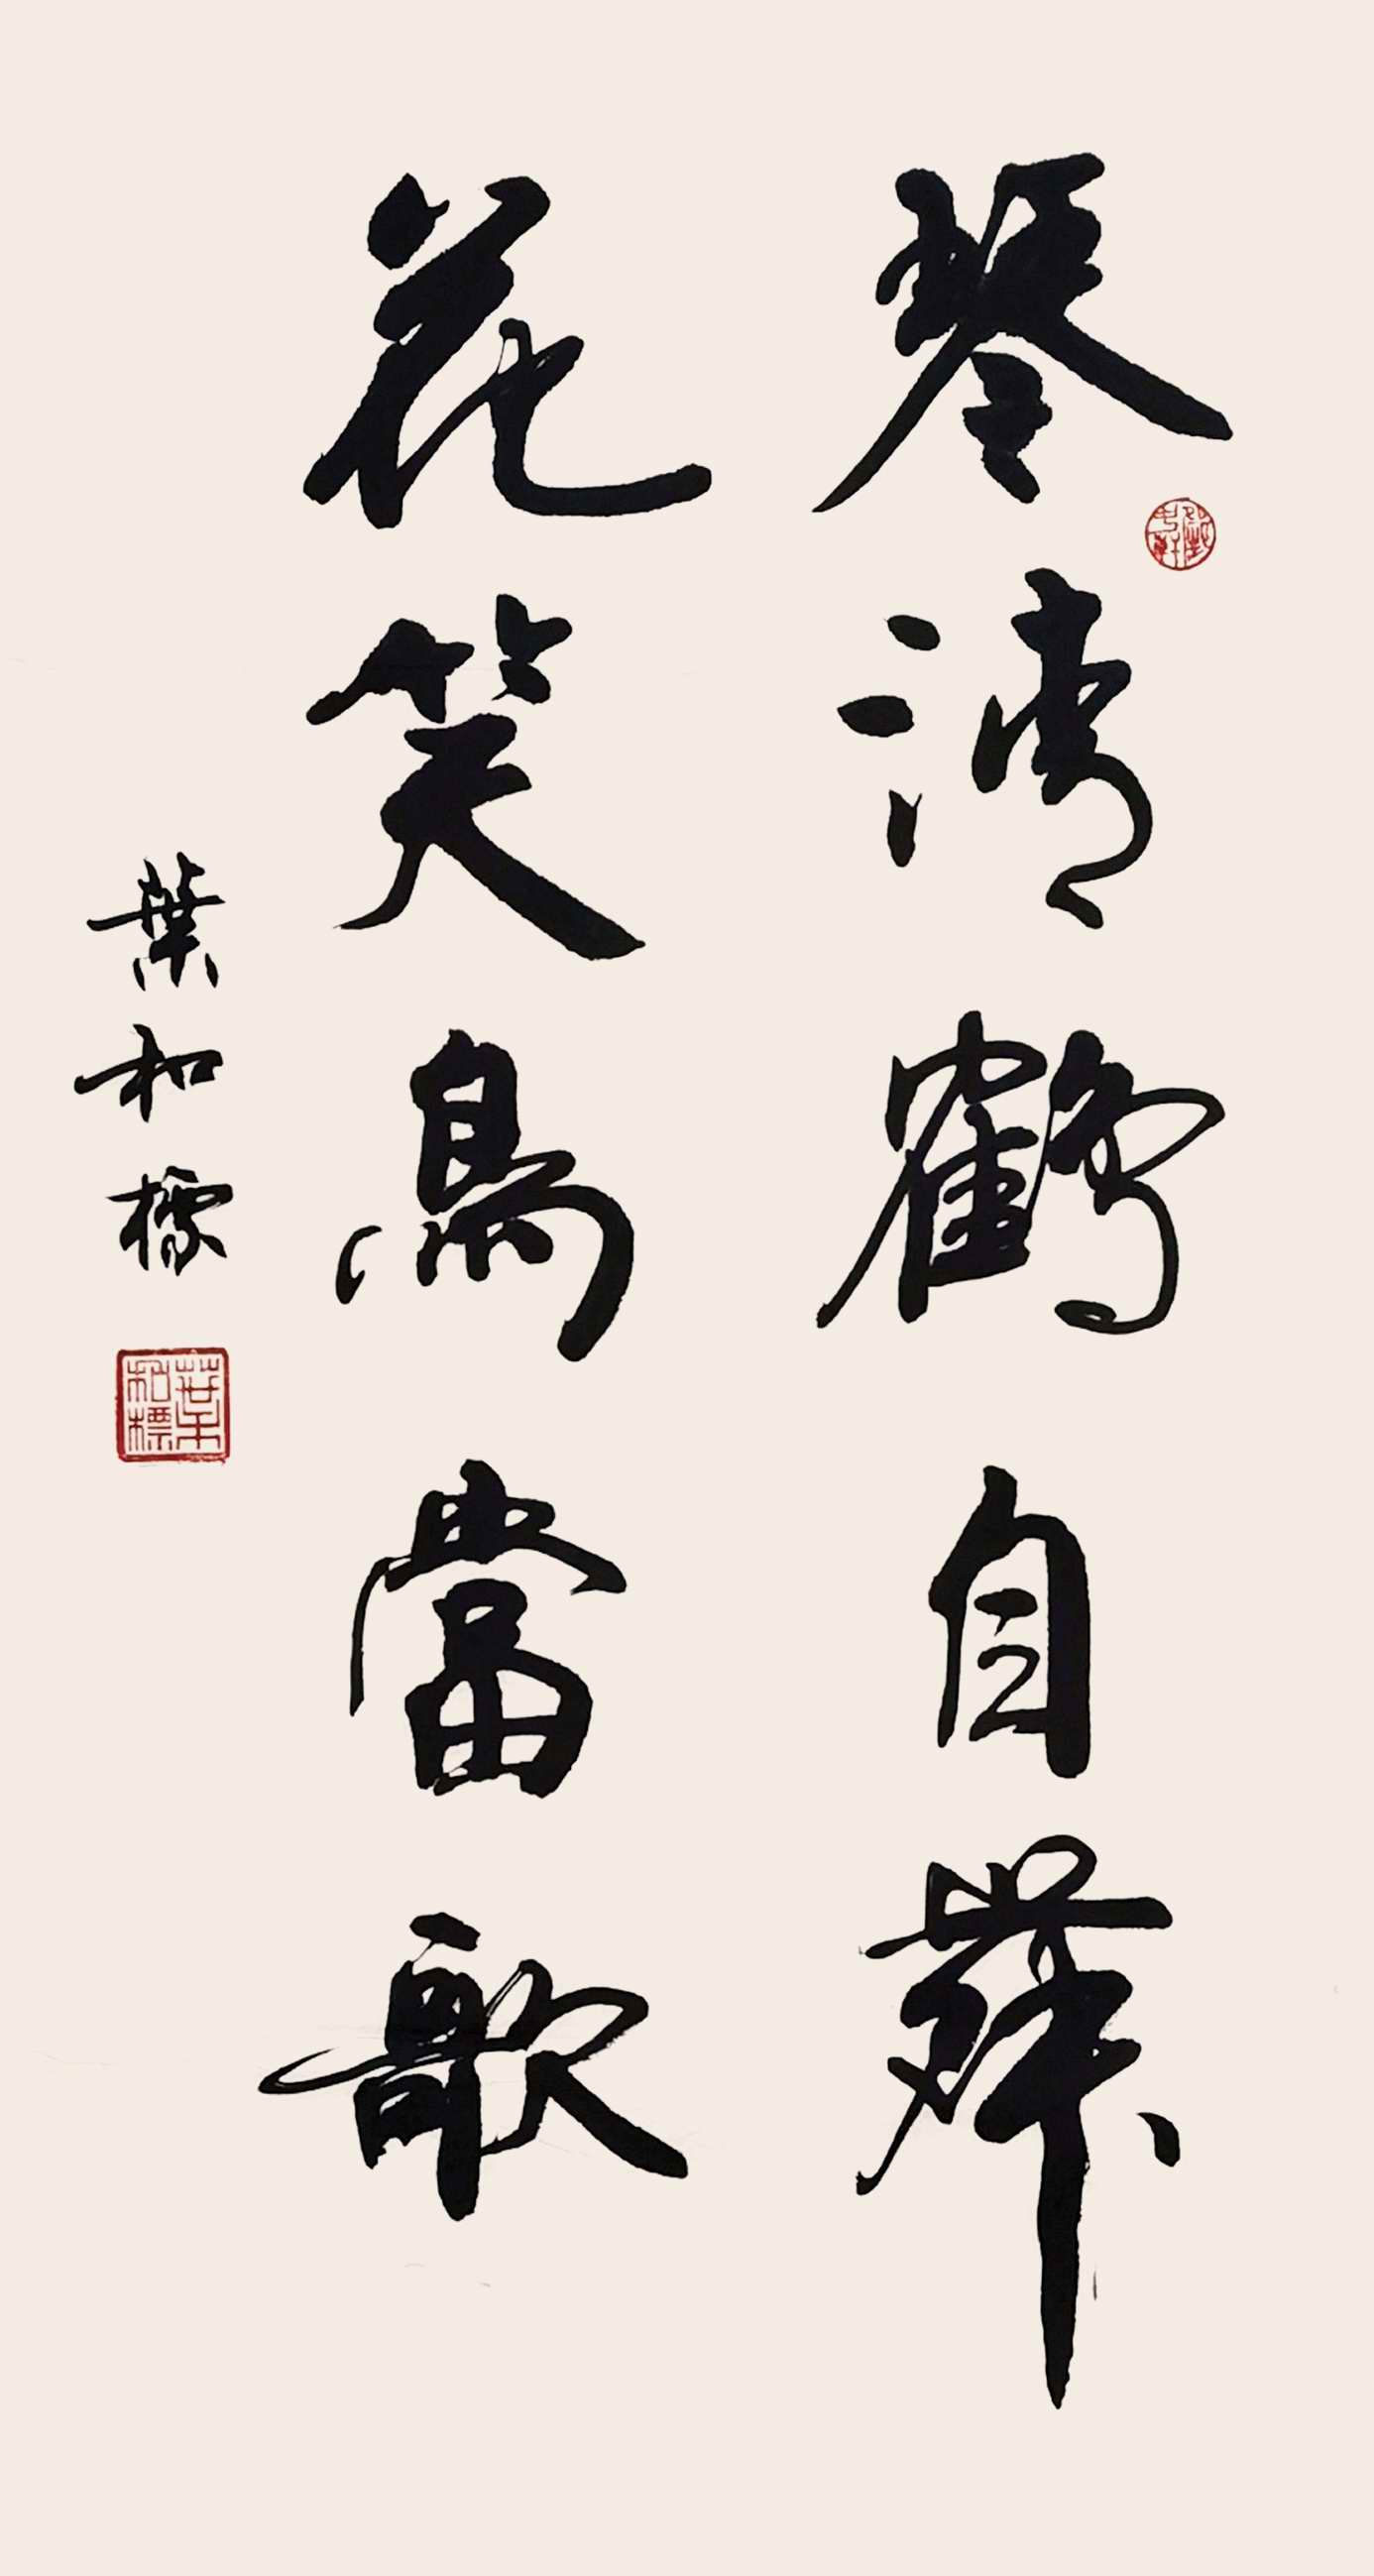 琴清鶴自舞
花笑鳥當歌
葉和標
葉和標